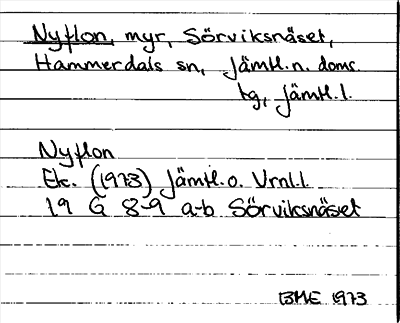 Nyflon, myr, Sörviksnäset,
Hammerdals sn, Jämtl.n. doms.
tg, Jämtl.l.
Nyflon
Ek. (1973) Jämtl.o. Vrnl.l.
19 G 8-9 a-b Sörviksnäset
BME 1973